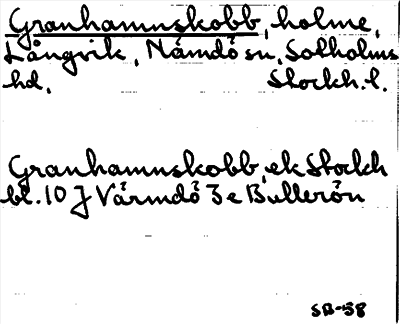 Granhamnskobb, holme,
Långvik, Nämdö sn, Sotholms
hd, Stockh. l.
Granhamnskobb, ek Stockh
bl. 10 J Värmdö 3 e Bullerön
SB-58